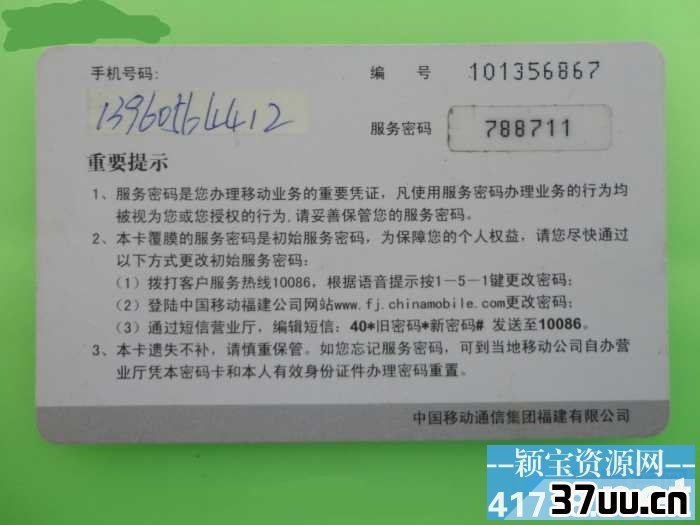 手机号码:
编 号 101356867
13960564412
服务密码 788711
重要提示
1、服务密码是您办理移动业务的重要凭证，凡使用服务密码办理业务的行为均
被视为您或您授权的行为,请妥善保管您的服务密码。
2、本卡覆膜的服务密码是初始服务密码，为保障您的个人权益，请您尽快通过
以下方式更改初始服务密码：
（1）拨打客户服务热线10086，根据语音提示按1－5－1键更改密码；
（2）登陆中国移动福建公司网站www.fj.chinamobile.com更改密码；
（3）通过短信营业厅，编辑短信：40*旧密码*新密码# 发送至10086。
3、本卡遗失不补，请慎重保管。如您忘记服务密码，可到当地移动公司自办营
业厅凭本密码卡和本人有效身份证件办理密码重置。
中国移动通信集团福建有限公司
--颖宝资源网--
37uu.cn